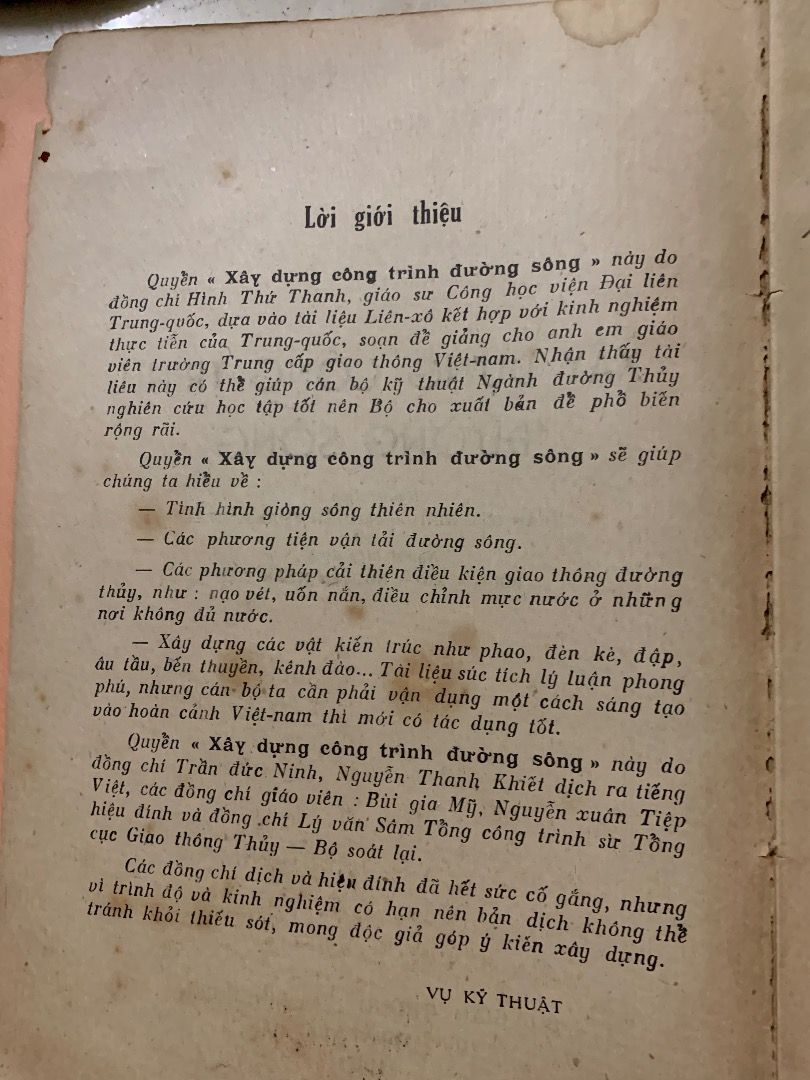 Lời giới thiệu
Quyển « Xây dựng công trình đường sông » này do
đồng chí Hình Thứ Thanh, giáo sư Công học viện Đại liên
Trung-quốc, dựa vào tài liệu Liên-xô kết hợp với kinh nghiệm
thực tiễn của Trung-quốc, soạn để giảng cho anh em giáo
viên trường Trung cấp giao thông Việt-nam. Nhận thấy tài
liêu này có thể giúp cán bộ kỹ thuật Ngành đường Thủy
nghiên cứu học tập tốt nên Bộ cho xuất bản để phổ biến
rộng rãi.
Quyển « Xây dựng công trình đường sông » sẽ giúp
chúng ta hiểu về :
— Tình hình giòng sông thiên nhiên.
— Các phương tiện vận tải đường sông.
— Các phương pháp cải thiên điều kiện giao thông đường
thủy, như : nạo vét, uốn nắn, điều chỉnh mực nước ở những
nơi không đủ nước.
— Xây dựng các vật kiến trúc như phao, đèn kè, đập,
âu tầu, bến thuyền, kênh đào... Tài liệu súc tích lý luận phong
phú, nhưng cán bộ ta cần phải vận dụng một cách sáng tạo
vào hoàn cảnh Việt-nam thì mới có tác dụng tốt.
Quyển « Xây dựng công trình đường sông » này do
đồng chí Trần đức Ninh, Nguyễn Thanh Khiết dịch ra tiếng
Việt, các đồng chí giáo viên : Bùi gia Mỹ, Nguyễn xuân Tiệp
hiệu đính và đồng chí Lý văn Sâm Tổng công trình sư Tổng
cục Giao thông Thủy — Bộ soát lại.
Các đồng chí dịch và hiệu đính đã hết sức cố gắng, nhưng
vì trình độ và kinh nghiệm có hạn nên bản dịch không thể
tránh khỏi thiếu sót, mong độc giả góp ý kiến xây dựng.
VỤ KỸ THUẬT